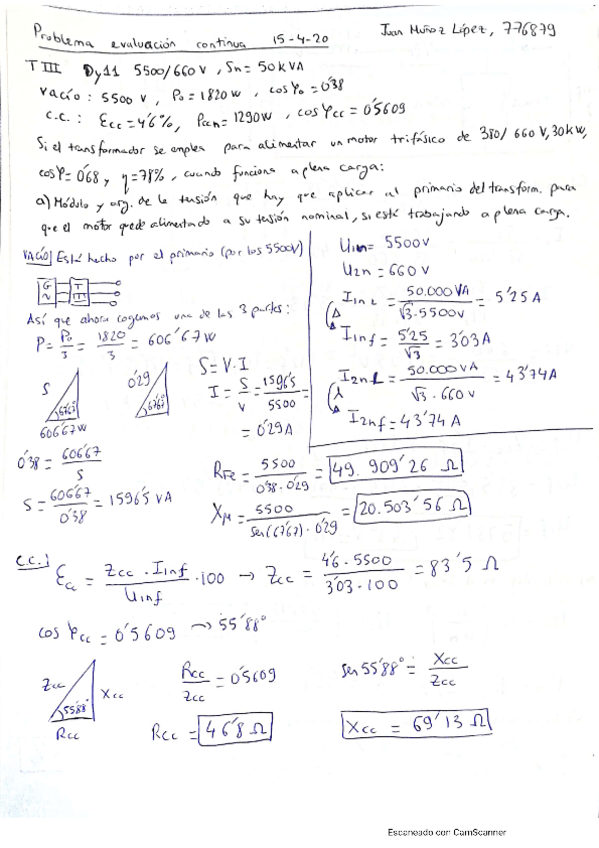 Problema evaluación continua 15-4-20
Juan Muñoz López, 776879
T III Dy11 5500/660 V, Sn = 50 kVA
Vacío: 5500 V, P₀ = 1820 W, cos φ₀ = 0'38
C.C.: Ecc = 4'6%, Pccn = 1290 W, cos φcc = 0'5609
Si el transformador se emplea para alimentar un motor trifásico de 380/660 V, 30 kW,
cos φ = 0'68, η = 78%, cuando funciona a plena carga:
a) Módulo y arg. de la tensión que hay que aplicar al primario del transform. para
que el motor quede alimentado a su tensión nominal, si está trabajando a plena carga.
VACÍO] Está hecho por el primario (por los 5500V)
G ~ T III
Así que ahora cogemos una de las 3 partes:
P = P₀/3 = 1820/3 = 606'67 W
S 67'67º 606'67 W
0'29 67'67º
S = V · I
I = S/V = 1596'5/5500 =
= 0'29 A
0'38 = 606'67/S
S = 606'67/0'38 = 1596'5 VA
U1n = 5500 V
U2n = 660 V
I1nL = 50.000 VA/√3·5500 V = 5'25 A
(Δ
I1nf = 5'25/√3 = 3'03 A
I2nL = 50.000 VA/√3 · 660 V = 43'74 A
(⅄
I2nf = 43'74 A
RFe = 5500/0'38 · 0'29 = 49.909'26 Ω
Xμ = 5500/sen(67'67) · 0'29 = 20.503'56 Ω
C.C.]
Ecc = Zcc · I1nf/U1nf · 100 → Zcc = 4'6 · 5500/3'03 · 100 = 83'5 Ω
cos φcc = 0'5609 → 55'88º
Zcc Xcc 55'88º Rcc
Rcc/Zcc = 0'5609
Rcc = 46'8 Ω
sen 55'88º = Xcc/Zcc
Xcc = 69'13 Ω
Escaneado con CamScanner